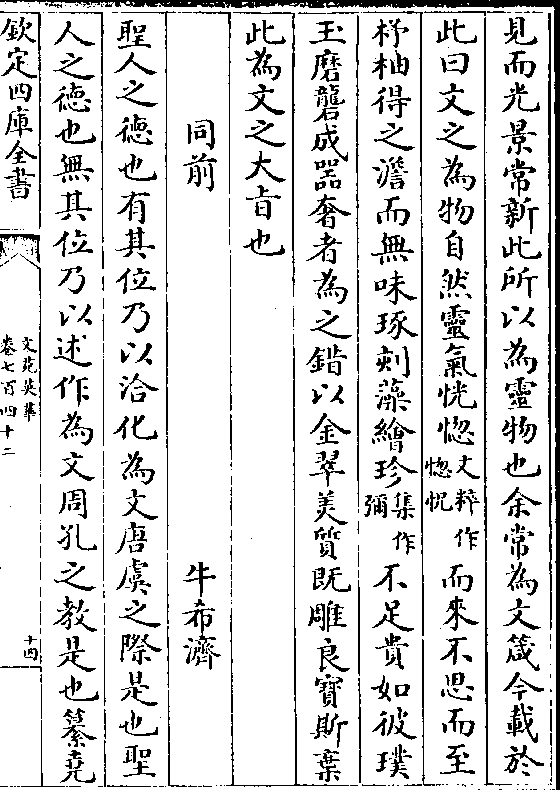 見而光景常新此所以為靈物也余常為文箴今載於
此曰文之為物自然靈氣恍惚文粹作惚怳而來不思而至
杼柚得之澹而無味琢刻藻繪珍集作彌不足貴如彼璞
玉磨礲成器奢者為之錯以金翠美質既雕良寶斯棄
此為文之大旨也
同前 牛希濟
聖人之德也有其位乃以治化為文唐虞之際是也聖
人之德也無其位乃以述作為文周孔之教是也纂堯
欽定四庫全書
文苑英華
卷七百四十二
十四